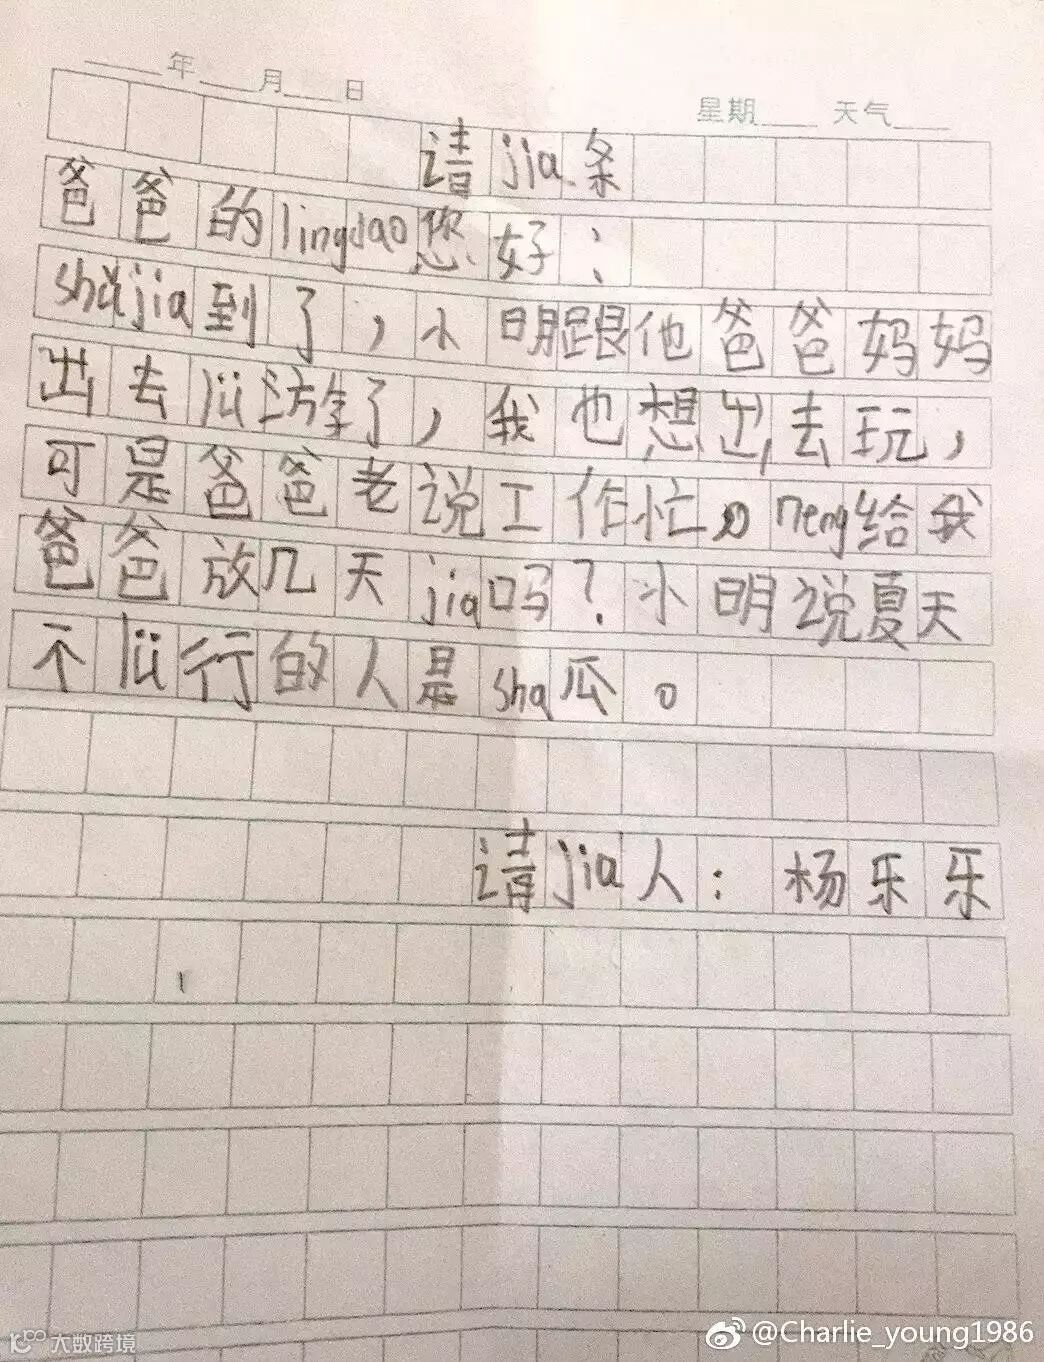 年 月 日
星期 天气
请jia条
爸爸的lingdao您好：
shǔjia到了，小明跟他爸爸妈妈
出去lü游了，我也想出去玩，
可是爸爸老说工作忙。neng给我
爸爸放几天jia吗？小明说夏天
不lü行的人是sha瓜。
请jia人：杨乐乐
大数跨境
@Charlie_young1986